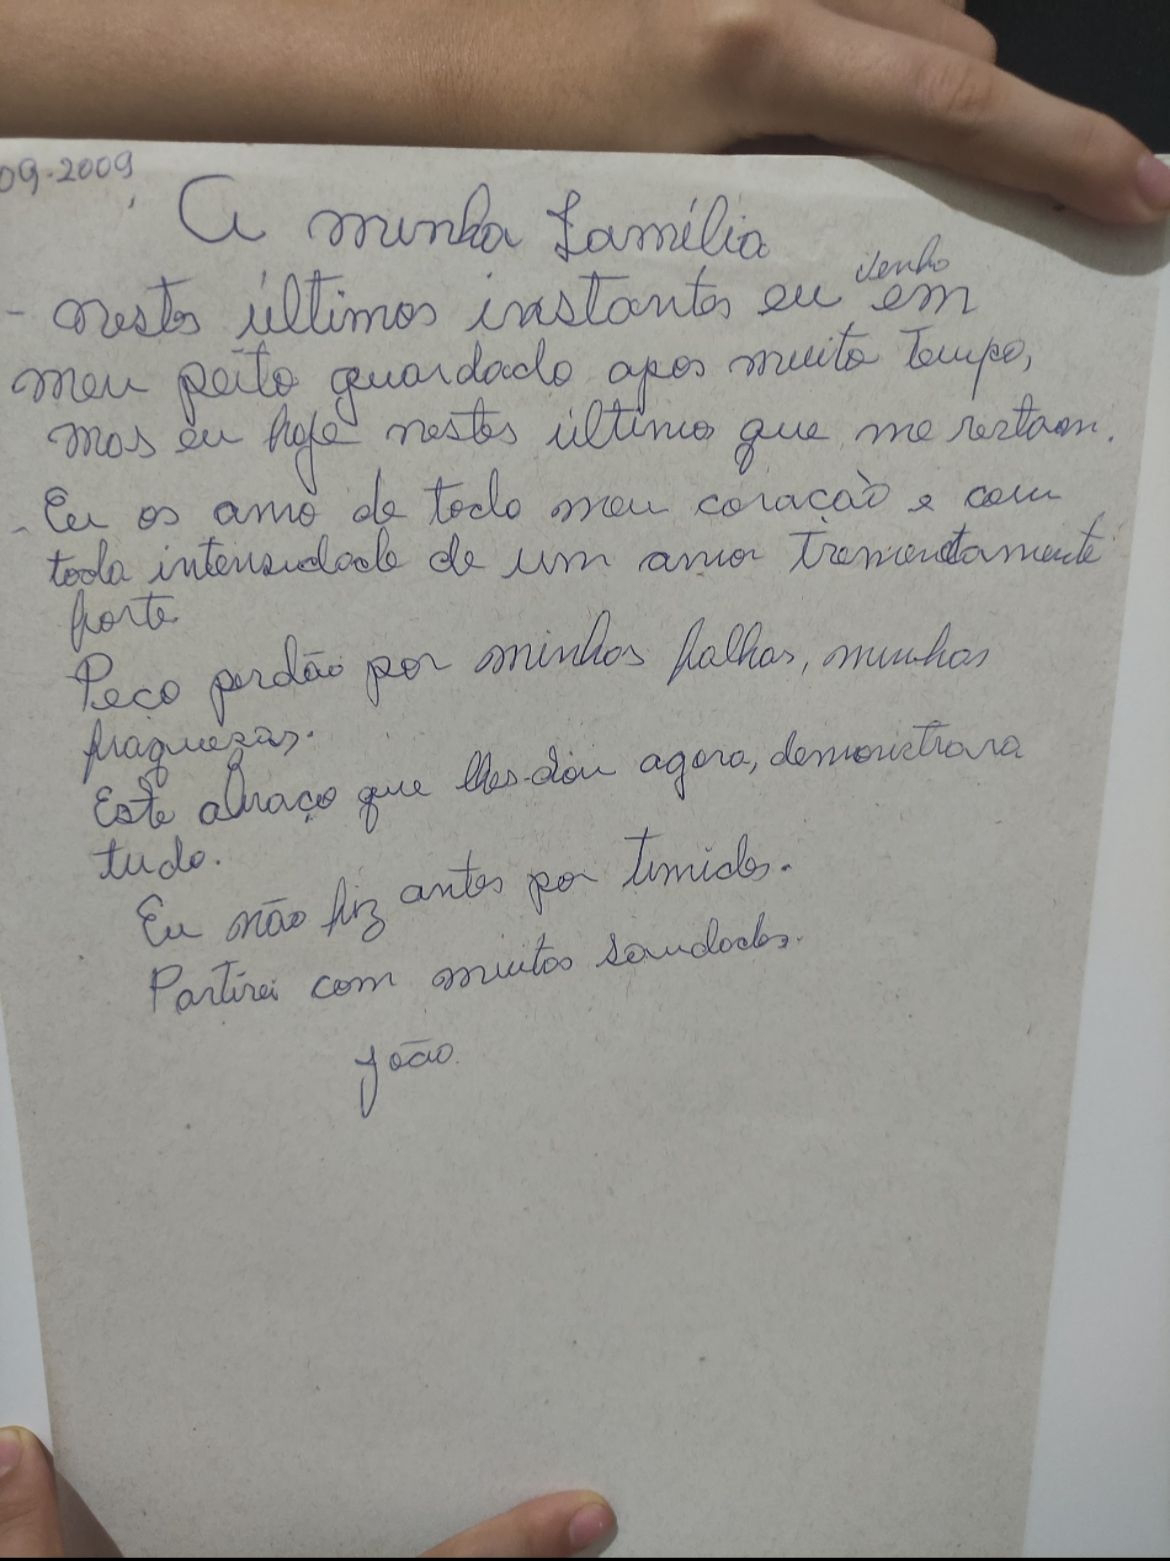 09-2009
A minha família
- nestes últimos instantes eu venho em
meu peito guardado apos muito tempo,
mas eu hoje nestes último que me restam.
- Eu os amo de todo meu coração e com
toda intensidade de um amor tremendamente
forte
Peço perdão por minhas falhas, minhas
fraquezas.
Este abraço que lhes-dou agora, demonstrara
tudo.
Eu não fiz antes por timides.
Partirei com muitas saudades.
João